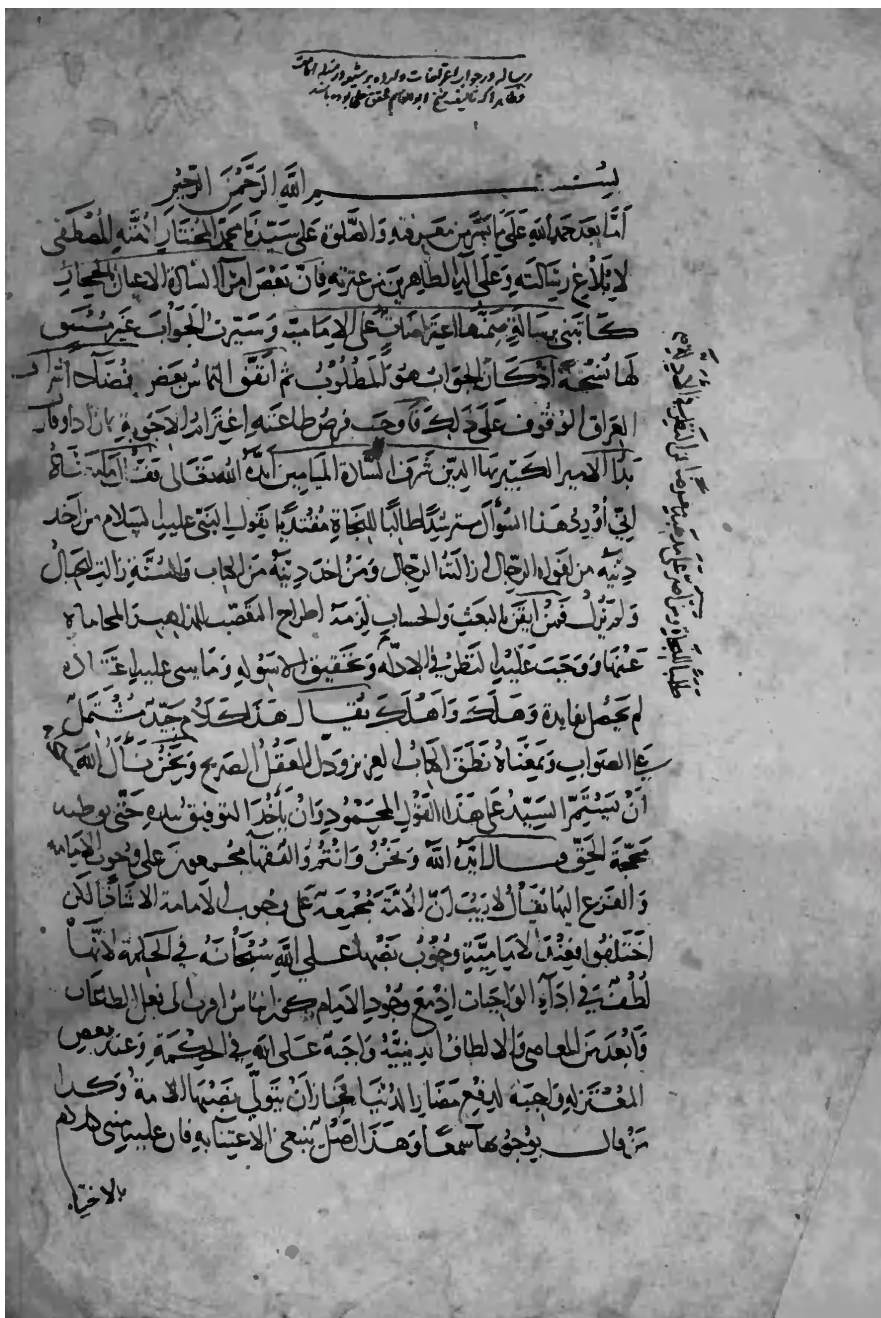 رساله در جواب اعتراضات وارده بر شیعه در مسئله امامت
و ظاهرا که تالیف شیخ ابوالقاسم محقق حلی بوده باشد
بسم الله الرحمن الرحيم
اما بعد حمد الله على ما يسر من معرفته والصلوة على سيدنا محمد المختار المصطفى
لابلاغ رسالته وعلى آله الطاهرين من عترته فان بعض امرآ السادة الاعيان الحجاز
كاتبنى برسالة ضمنها اعتراضات على الامامية وسيرت الجواب غير مستبق
لها نسخة اذ كان الجواب هو المطلوب ثم اتفق التماس بعض فضلآ اشراف
العراق الوقوف على ذلك فاوجب فرض طاعته الاجوبة
بدأ الامير الكبير بهآ الدين شرف السادة الميامين ايده الله تعالى فقال
انى اورد هذا السؤال مسترشدا طالبا للنجاة مقتديا بقول النبى عليه السلام من اخذ
دينه من افواه الرجال ازالته الرجال ومن اخذ دينه من الكتاب والسنة زالت الجبال
ولم يزل فمن ايقن بالبعث والحساب لزمه اطراح التعصب للمذاهب والمحاماة
عنها ووجب عليه النظر فى الادلة وتحقيق الاسولة وما بنى عليه
لم يحصل بفايدة وهلك واهلك يقال هذا كلام جيد مشتمل
على الصواب وبمعناه نطق الكتاب العزيز ودل العقل الصريح ونحن نسأل الله
ان يستمر السيد على هذا القول المحمود وان يأخذ التوفيق بيده حتى
محجة الحق قال ايده الله ونحن وانتم والفقهآ مجمعون على وجوب الامامة
والفزع اليها يقال لا ريب ان الامة مجمعة على وجوب الامامة الا شاذا لكن
اختلفوا فعند الامامية وجوب نصبها على الله سبحانه فى الحكمة لانها
لطف فى ادآء الواجبات اذ مع وجود الامام يكون الناس اقرب الى فعل الطاعات
وابعد من المعاصى والالطاف الدينية واجبة على الله فى الحكمة وعند بعض
المعتزلة واجبة لدفع مضار الدنيا فجاز ان يتولى نصبها الامة وكذا
من قال بوجوبها سمعا وهذا الاصل ينبغى الاعتنآ به فان عليه مبنى
بالاخرة
طلبا للنجاة ومن اصر على مذهبه معرضا عن النظر فى الادلة